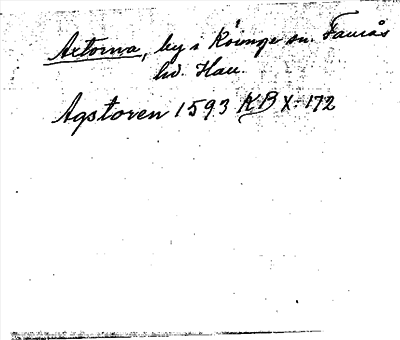 Axtorna, by i Köinge sn. Faurås
hd. Hall.
Agstoren 1593 KB X: 172